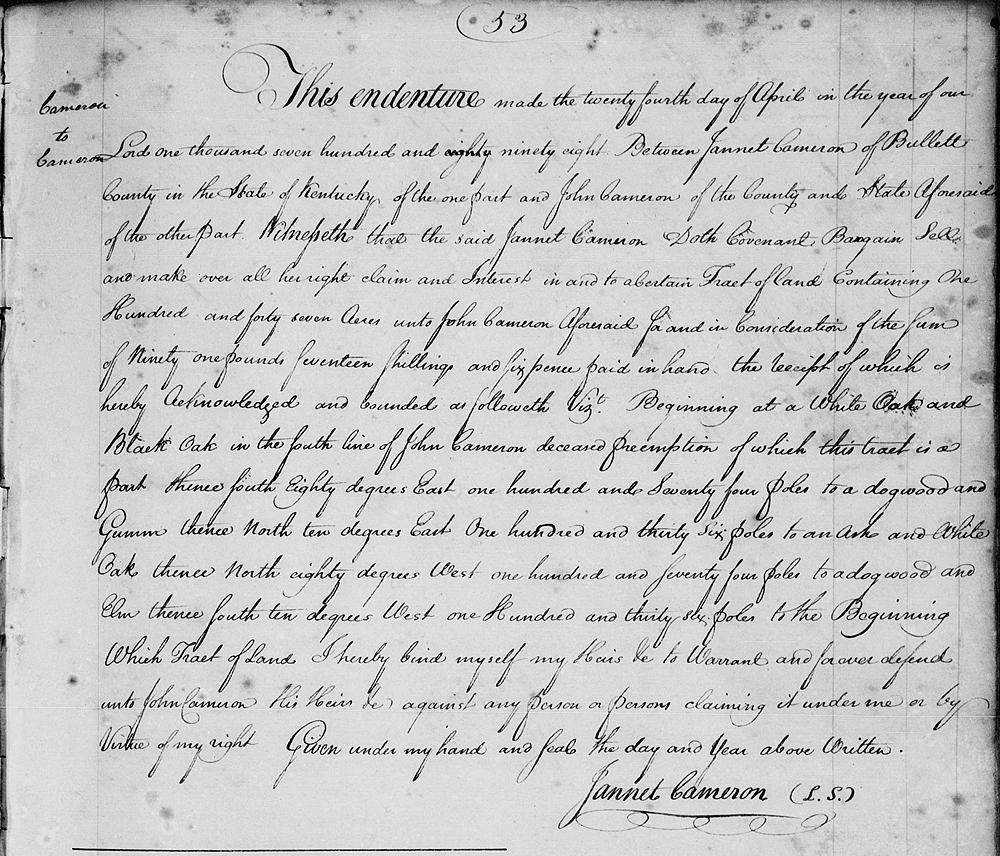 53
Cameron
to
Cameron
This endenture made the twenty fourth day of April in the year of our
Lord one thousand seven hundred and eighty ninety eight. Between Jannet Cameron of Bullett
County in the State of Kentucky of the one part and John Cameron of the County and State Aforesaid
of the other part. Witnesseth that the said Jannet Cameron Doth Covenant, Bargain Sell
and make over all her right claim and Interest in and to a Certain Tract of Land Containing One
Hundred and forty seven Acres unto John Cameron Aforesaid for and in Consideration of the Sum
of Ninety one pounds Seventeen Shillings and Six pence paid in hand the receipt of which is
hereby Acknowledged and bounded as followeth Vizt. Beginning at a White Oak and
Black Oak in the South line of John Cameron deceased preemption of which this tract is a
part thence South Eighty degrees East one hundred and Seventy four poles to a dogwood and
Gumm thence North ten degrees East One hundred and thirty Six poles to an Ash and White
Oak thence North eighty degrees West one hundred and seventy four poles to a dogwood and
Elm thence South ten degrees West one Hundred and thirty six poles to the Beginning
Which Tract of Land I hereby bind myself my Heirs &c to Warrant and forever defend
unto John Cameron His Heirs &c against any person or persons claiming it under me or by
Virtue of my right Given under my hand and Seal the day and Year above Written.
Jannet Cameron (L.S.)